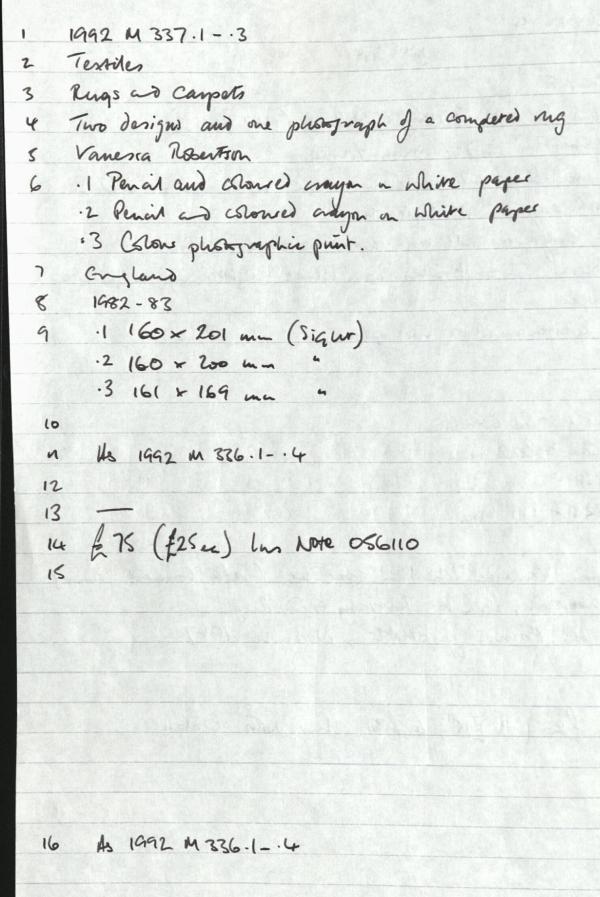 1 1992 M 337.1 - .3
2 Textiles
3 Rugs and Carpets
4 Two designs and one photograph of a completed rug
5 Vanessa Robertson
6 .1 Pencil and coloured crayon on white paper
.2 Pencil and coloured crayon on white paper
.3 Colour photographic print.
7 England
8 1982-83
9 .1 160 x 201 mm (Sight)
.2 160 x 200 mm "
.3 161 x 169 mm "
10
11 As 1992 M 336.1 - .4
12
13 —
14 £75 (£25 ea) Ins Note 056110
15
16 As 1992 M 336.1 - .4